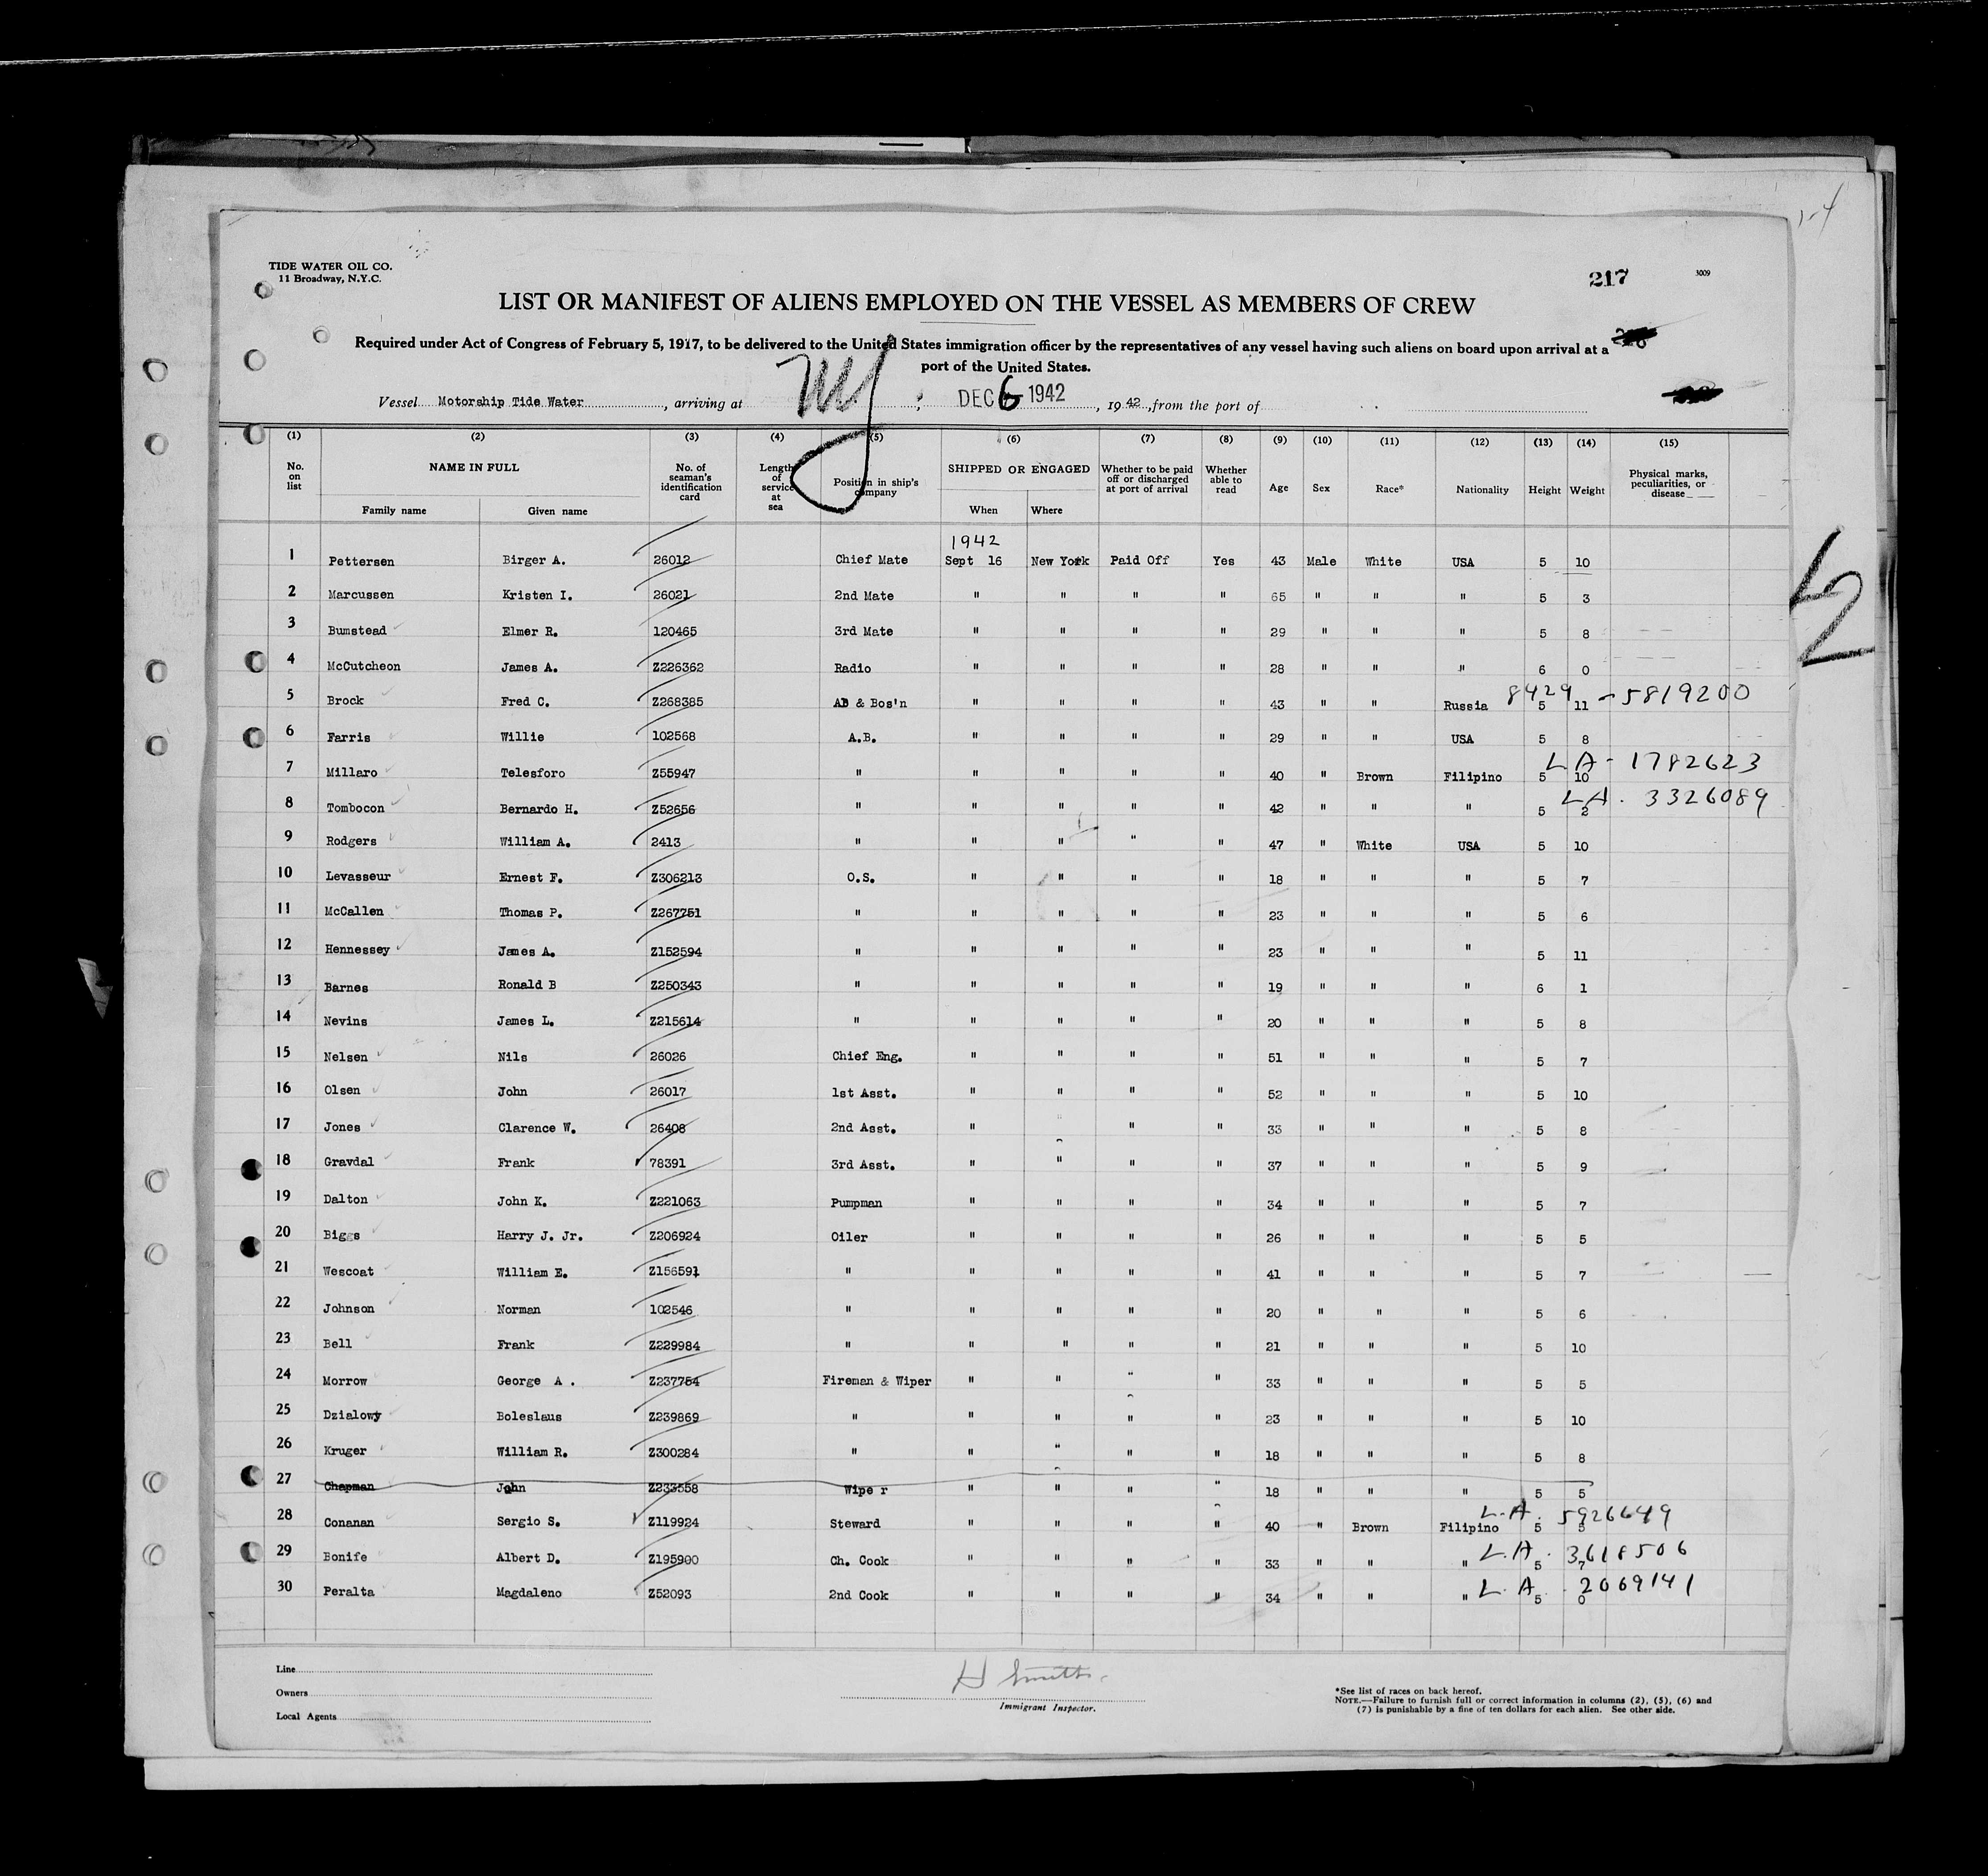 TIDE WATER OIL CO.
11 Broadway, N.Y.C.
217
3009
LIST OR MANIFEST OF ALIENS EMPLOYED ON THE VESSEL AS MEMBERS OF CREW
Required under Act of Congress of February 5, 1917, to be delivered to the United States immigration officer by the representatives of any vessel having such aliens on board upon arrival at a
port of the United States.
Vessel Motorship Tide Water, arriving at NY, DEC 6 1942, 1942, from the port of
(1) (2) (3) (4) (5) (6) (7) (8) (9) (10) (11) (12) (13) (14) (15)
No. on list NAME IN FULL Family name Given name No. of seaman's identification card Length of service at sea Position in ship's company SHIPPED OR ENGAGED When Where Whether to be paid off or discharged at port of arrival Whether able to read Age Sex Race* Nationality Height Weight Physical marks, peculiarities, or disease
1942
1 Pettersen Birger A. 26012 Chief Mate Sept 16 New York Paid Off Yes 43 Male White USA 5 10
2 Marcussen Kristen I. 26021 2nd Mate " " " " 65 " " " 5 3
3 Bumstead Elmer R. 120465 3rd Mate " " " " 29 " " " 5 8
4 McCutcheon James A. Z226362 Radio " " " " 28 " " " 6 0
5 Brock Fred C. Z268385 AB & Bos'n " " " " 43 " " Russia 5 11 8429 - 5819200
6 Farris Willie 102568 A.B. " " " " 29 " " USA 5 8
7 Millaro Telesforo Z55947 " " " " " 40 " Brown Filipino 5 10 LA - 1782623
8 Tombocon Bernardo H. Z52656 " " " " " 42 " " " 5 2 LA. 3326089
9 Rodgers William A. 2413 " " " " " 47 " White USA 5 10
10 Levasseur Ernest F. Z306213 O.S. " " " " 18 " " " 5 7
11 McCallen Thomas P. Z267751 " " " " " 23 " " " 5 6
12 Hennessey James A. Z152594 " " " " " 23 " " " 5 11
13 Barnes Ronald B Z250343 " " " " " 19 " " " 6 1
14 Nevins James L. Z215614 " " " " " 20 " " " 5 8
15 Nelsen Nils 26026 Chief Eng. " " " " 51 " " " 5 7
16 Olsen John 26017 1st Asst. " " " " 52 " " " 5 10
17 Jones Clarence W. 26408 2nd Asst. " " " " 33 " " " 5 8
18 Gravdal Frank 78391 3rd Asst. " " " " 37 " " " 5 9
19 Dalton John K. Z221063 Pumpman " " " " 34 " " " 5 7
20 Biggs Harry J. Jr. Z206924 Oiler " " " " 26 " " " 5 5
21 Wescoat William E. Z156591 " " " " " 41 " " " 5 7
22 Johnson Norman 102546 " " " " " 20 " " " 5 6
23 Bell Frank Z229984 " " " " " 21 " " " 5 10
24 Morrow George A . Z237754 Fireman & Wiper " " " " 33 " " " 5 5
25 Dzialowy Boleslaus Z239869 " " " " " 23 " " " 5 10
26 Kruger William R. Z300284 " " " " " 18 " " " 5 8
27 Chapman John Z233558 Wipe r " " " " 18 " " " 5 5
28 Conanan Sergio S. Z119924 Steward " " " " 40 " Brown Filipino 5 5 L.A. 5926649
29 Bonife Albert D. Z195900 Ch. Cook " " " " 33 " " " 5 7 L.A. 3618506
30 Peralta Magdaleno Z52093 2nd Cook " " " " 34 " " " 5 0 L.A. 2069141
Line
Owners
Local Agents
H Smith
Immigrant Inspector.
*See list of races on back hereof.
NOTE.—Failure to furnish full or correct information in columns (2), (5), (6) and
(7) is punishable by a fine of ten dollars for each alien. See other side.